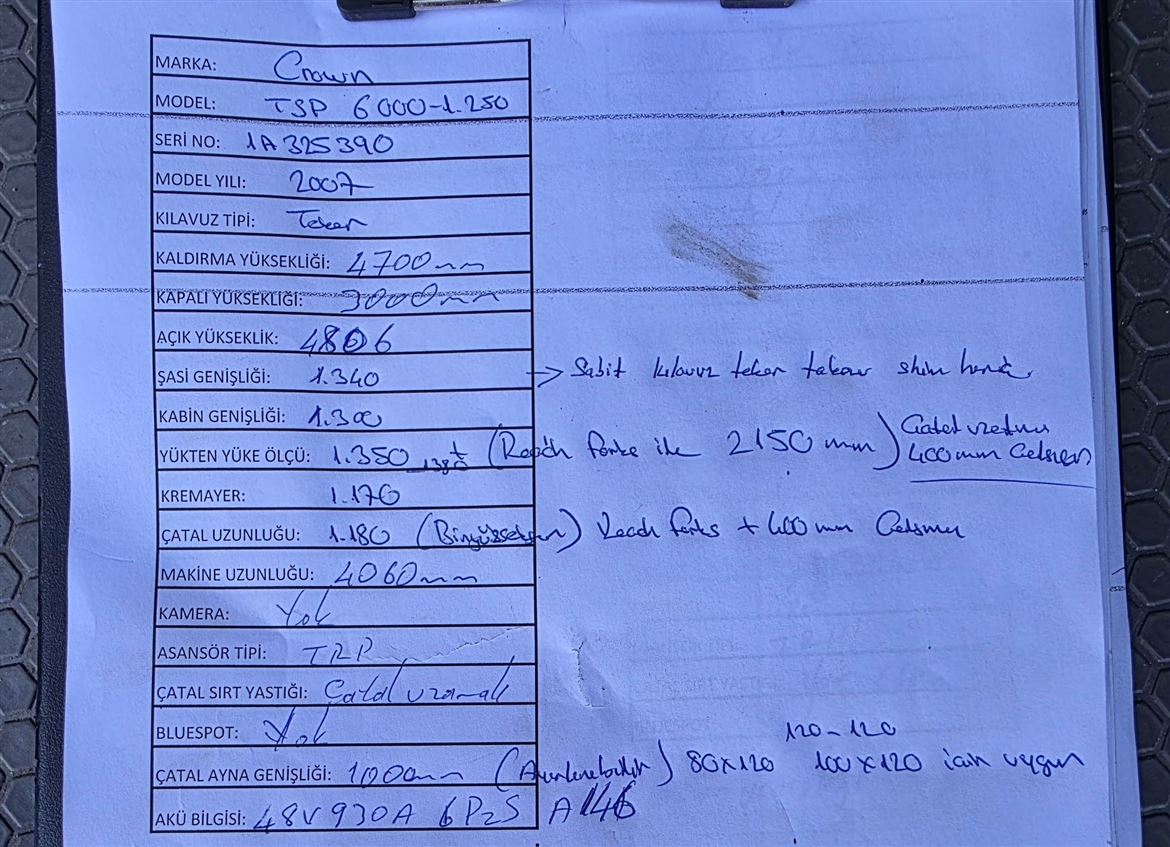 MARKA: Crown
MODEL: TSP 6000-1.250
SERİ NO: 1A325390
MODEL YILI: 2007
KILAVUZ TİPİ: Teker
KALDIRMA YÜKSEKLİĞİ: 4700mm
KAPALI YÜKSEKLİĞİ: 3000mm
AÇIK YÜKSEKLİK: 4806
ŞASİ GENİŞLİĞİ: 1.340 → Sabit kılavuz teker
KABİN GENİŞLİĞİ: 1.300
YÜKTEN YÜKE ÖLÇÜ: 1.350 (Reach forks ile 2150 mm) 400mm
KREMAYER: 1.170
ÇATAL UZUNLUĞU: 1.180 Reach forks + 400 mm
MAKİNE UZUNLUĞU: 4060mm
KAMERA: Yok
ASANSÖR TİPİ: TRP
ÇATAL SIRT YASTIĞI: Çatal uzamalı
BLUESPOT: Yok
120-120
ÇATAL AYNA GENİŞLİĞİ: 1000mm (Ayarlanabilir) 80x120 100x120 için uygun
AKÜ BİLGİSİ: 48V 930A 6PzS A146